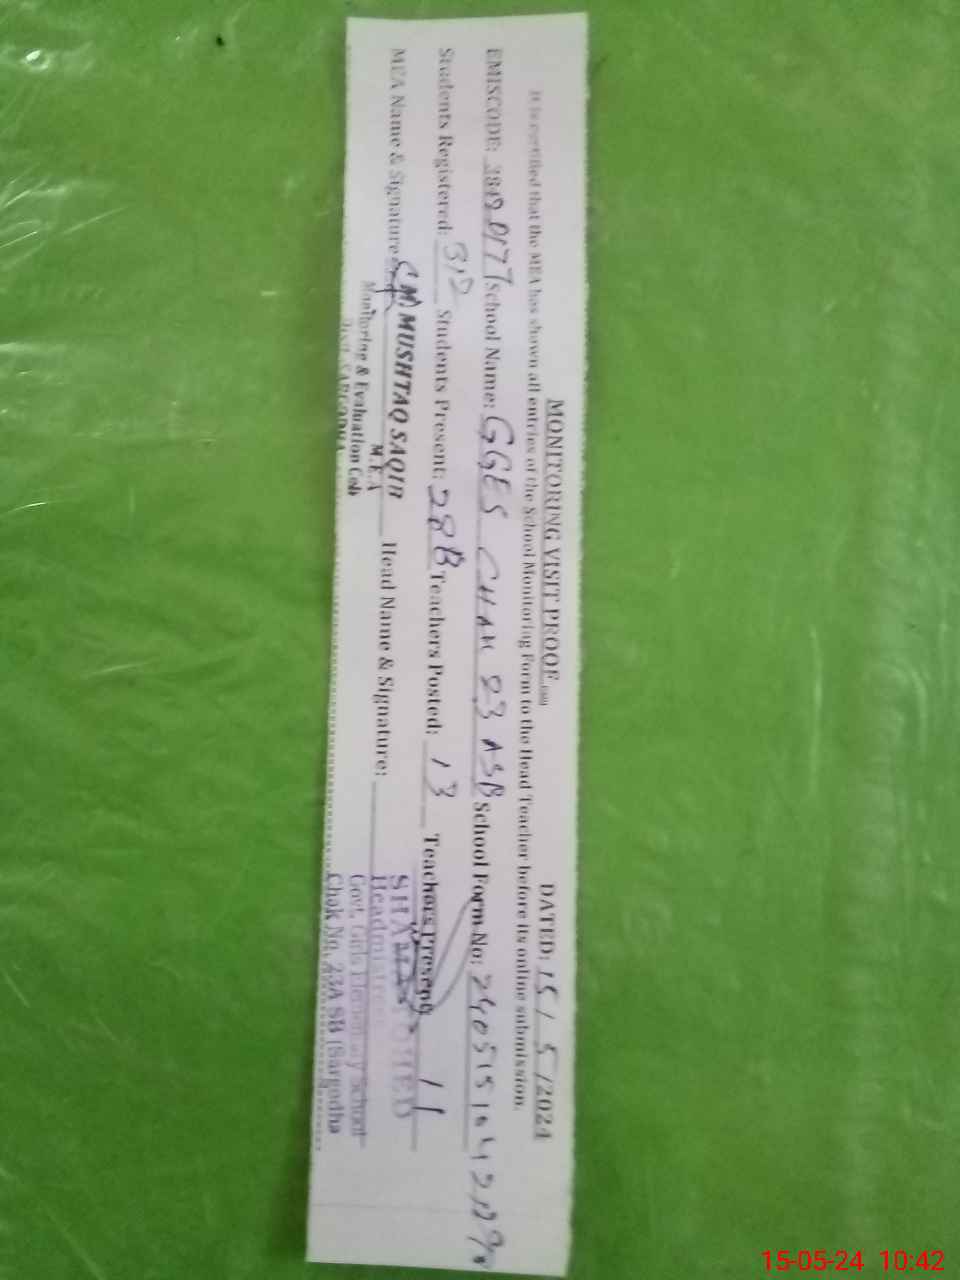 MONITORING VISIT PROOF DATED: 15/5/2024
It is certified that the MEA has shown all entries of the School Monitoring Form to the Head Teacher before its online submission.
EMISCODE: School Name: GGES CHAK 23 ASB School Form No:
Students Registered: 312 Students Present: 288 Teachers Posted: 13 Teachers Present: 11
MEA Name & Signature: MUSHTAQ SAQIB Head Name & Signature:
M.E.A
Monitoring & Evaluation Cell
Distt. SARGODHA
Headmistress
Govt. Girls Elementary School
Chak No. 23A SB (Sargodha
15-05-24 10:42